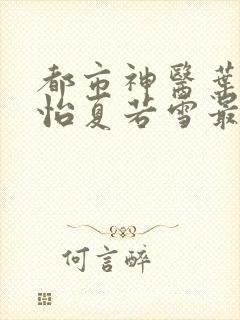 都市神醫葉
怡夏若雪最
何言醉